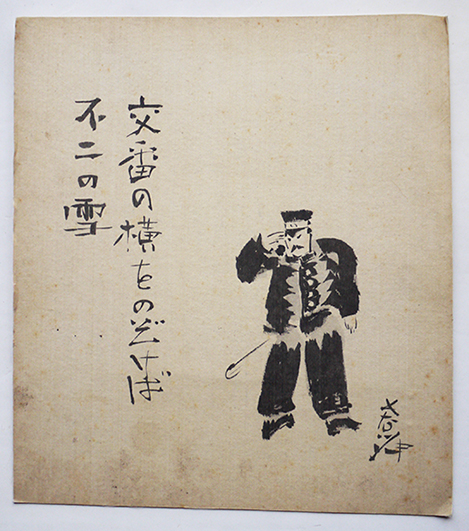 交番の横をのぞけば
不二の雪